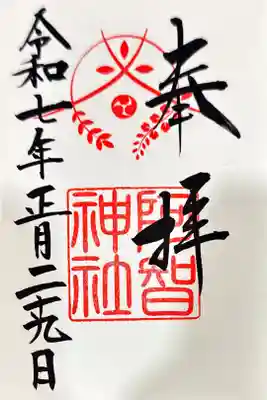 奉拝
阿智神社
令和七年正月二十九日